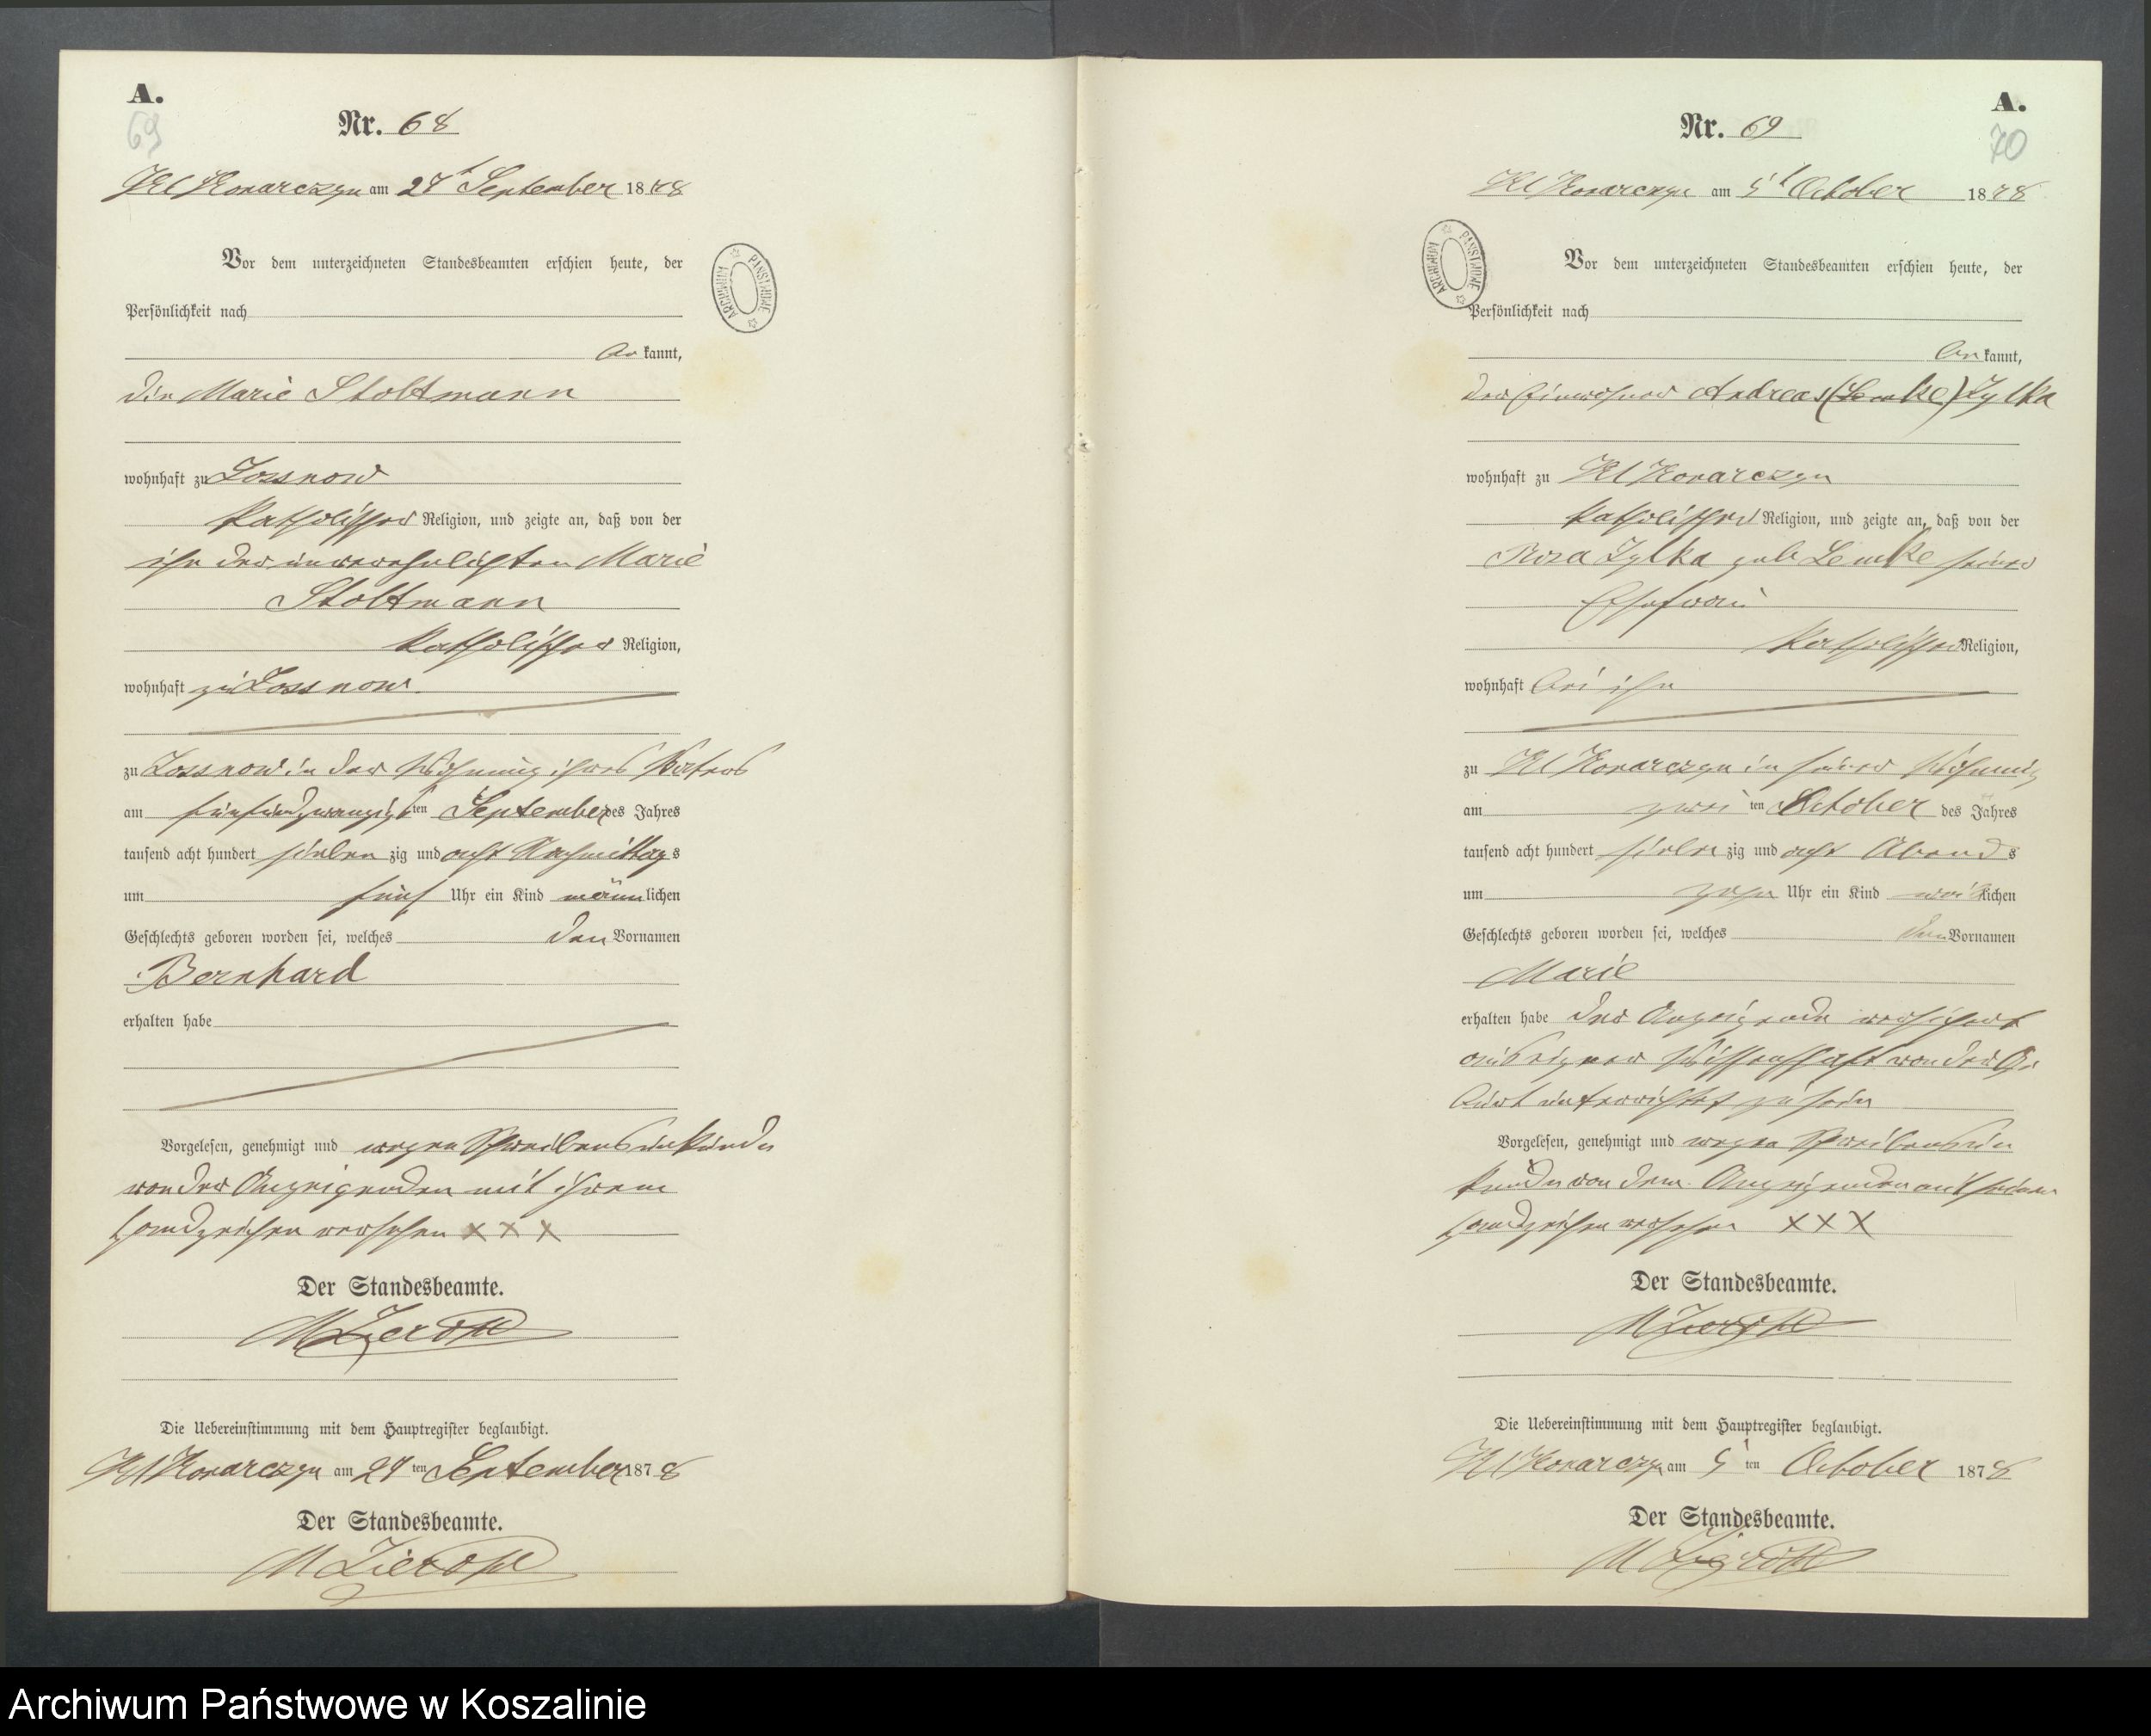 A.
69
Nr. 68
Kl Konarczyn am 27t September 1878
Vor dem unterzeichneten Standesbeamten erschien heute, der
Persönlichkeit nach
be kannt,
die Marie Stoltmann
wohnhaft zu Lossnow
katholischer Religion, und zeigte an, daß von der
ihr der unverehelichten Marie
Stoltmann
katholischer Religion,
wohnhaft zu Lossnow.
zu Lossnow in der Wohnung ihres Vaters
am fünfundzwanzigsten September des Jahres
tausend acht hundert sieben zig und acht Nachmittags
um fünf Uhr ein Kind männlichen
Geschlechts geboren worden sei, welches den Vornamen
Bernhard
erhalten habe
Vorgelesen, genehmigt und wegen Schreibensunkunde
von der Anzeigenden mit ihrem
Handzeichen versehen XXX
Der Standesbeamte.
Die Uebereinstimmung mit dem Hauptregister beglaubigt.
Kl Konarczyn am 27 ten September 1878
Der Standesbeamte.
A.
70
Nr. 69
Kl Konarczyn am 5t October 1878
Vor dem unterzeichneten Standesbeamten erschien heute, der
Persönlichkeit nach
be kannt,
der Einwohner Andreas (Lemke) Zylka
wohnhaft zu Kl Konarczyn
katholischer Religion, und zeigte an, daß von der
Rosa Zylka geb Lemke seiner
Ehefrau
katholischer Religion,
wohnhaft bei ihm
zu Kl Konarczyn in seiner Wohnung
am zwei ten October des Jahres
tausend acht hundert sieben zig und acht Abends
um zehn Uhr ein Kind weiblichen
Geschlechts geboren worden sei, welches den Vornamen
Marie
erhalten habe Der Anzeigende versichert
aus eigner Wissenschaft von der Ge
burt unterrichtet zu sein
Vorgelesen, genehmigt und wegen Schreibensun
kunde von dem Anzeigenden mit seinem
Handzeichen versehen XXX
Der Standesbeamte.
Die Uebereinstimmung mit dem Hauptregister beglaubigt.
Kl Konarczyn am 5 ten October 1878
Der Standesbeamte.
ARCHIWUM PAŃSTWOWE
ARCHIWUM PAŃSTWOWE
Archiwum Państwowe w Koszalinie